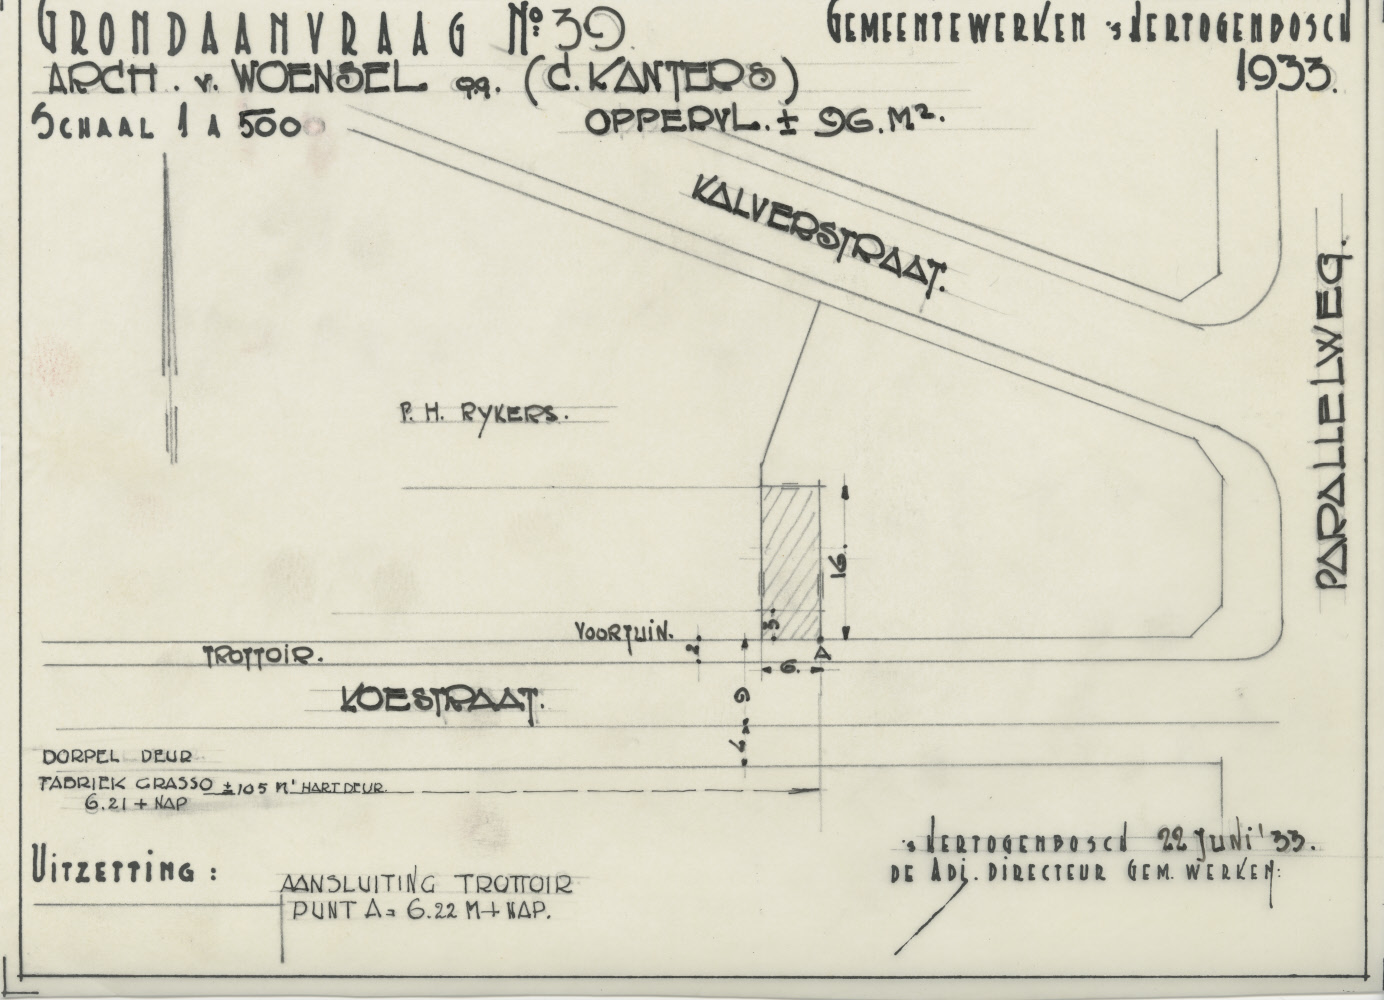 GRONDAANVRAAG No: 39.
GEMEENTEWERKEN 'sHERTOGENBOSCH
1933.
ARCH. v. WOENSEL qq. (C. KANTERS)
SCHAAL 1 A 500
OPPERVL. ± 96. M².
KALVERSTRAAT.
PARALLELWEG.
P. H. RYKERS.
16.
3.
VOORTUIN.
TROTTOIR.
2.
A
6.
KOESTRAAT.
9
DORPEL DEUR
FABRIEK GRASSO ± 105 M' HART DEUR.
6.21 + NAP
UITZETTING :
AANSLUITING TROTTOIR
PUNT A = 6.22 M + NAP.
'sHERTOGENBOSCH 22 JUNI '33.
DE ADJ. DIRECTEUR GEM. WERKEN: